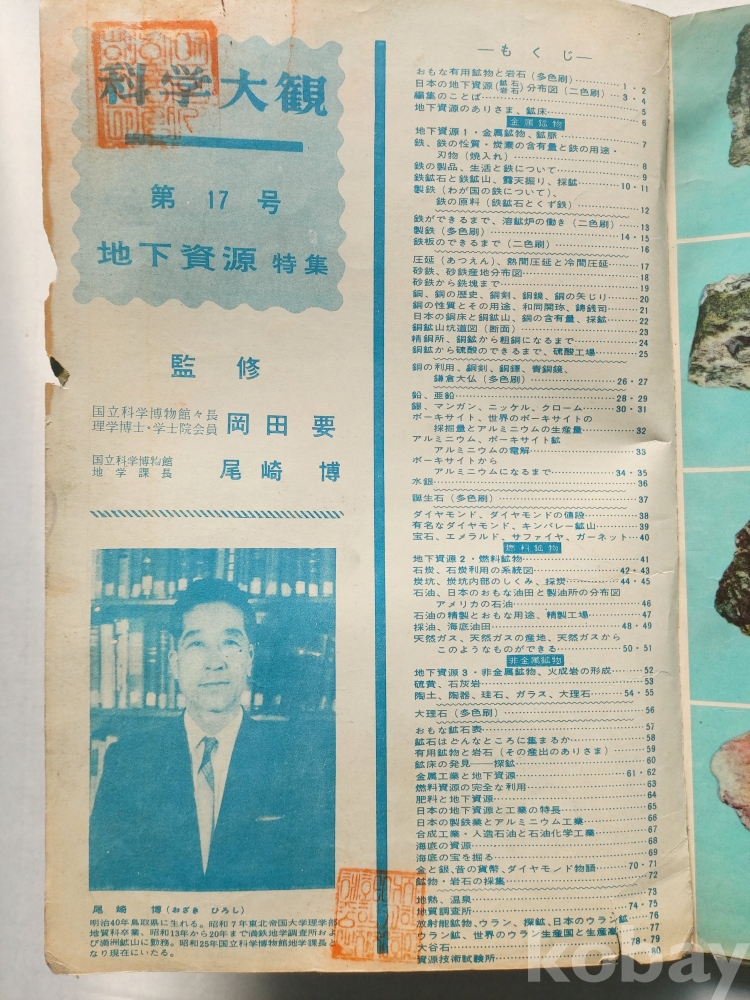 科学大観
第 17 号
地下資源 特集
監修
国立科学博物館々長
理学博士・学士院会員 岡田 要
国立科学博物館
地学課長 尾崎 博
尾崎 博 (おざき ひろし)
明治40年鳥取県に生れる。昭和7年東北帝国大学理学部
地質科卒業、昭和13年から20年まで満鉄地学調査所およ
び満洲鉱山に勤務。昭和25年国立科学博物館地学課長と
なり現在にいたる。
―もくじ―
おもな有用鉱物と岩石(多色刷)…1・2
日本の地下資源(鉱石 岩石)分布図(二色刷)…3・4
編集のことば…5
地下資源のありさま、鉱床…6
金属鉱物
地下資源1・金属鉱物、鉱脈…7
鉄、鉄の性質・炭素の含有量と鉄の用途・
刃物(焼入れ)…8
鉄の製品、生活と鉄について…9
鉄鉱石と鉄鉱山、露天掘り、採鉱…10・11
製鉄(わが国の鉄について)、
鉄の原料(鉄鉱石とくず鉄)…12
鉄ができるまで、溶鉱炉の働き(二色刷)…13
製鉄(多色刷)…14・15
鉄板のできるまで(二色刷)…16
圧延(あつえん)、熱間圧延と冷間圧延…17
砂鉄、砂鉄産地分布図…18
砂鉄から鉄塊まで…19
銅、銅の歴史、銅剣、銅鏡、銅の矢じり…20
銅の性質とその用途、和同開珎、鋳銭司…21
日本の銅床と銅鉱山、銅の含有量、採鉱…22
銅鉱山坑道図(断面)…23
精銅所、銅鉱から粗銅になるまで…24
銅鉱から硫酸のできるまで、硫酸工場…25
銅の利用、銅剣、銅鐸、青銅鏡、
鎌倉大仏(多色刷)…26・27
鉛、亜鉛…28・29
錫、マンガン、ニッケル、クローム…30・31
ボーキサイト、世界のボーキサイトの
採掘量とアルミニウムの生産量…32
アルミニウム、ボーキサイト鉱
アルミニウムの電解…33
ボーキサイトから
アルミニウムになるまで…34・35
水銀…36
誕生石(多色刷)…37
ダイヤモンド、ダイヤモンドの値段…38
有名なダイヤモンド、キンバレー鉱山…39
宝石、エメラルド、サファイヤ、ガーネット…40
燃料鉱物
地下資源2・燃料鉱物…41
石炭、石炭利用の系統図…42・43
炭坑、炭坑内部のしくみ、採炭…44・45
石油、日本のおもな油田と製油所の分布図
アメリカの石油…46
石油の精製とおもな用途、精製工場…47
採油、海底油田…48・49
天然ガス、天然ガスの産地、天然ガスから
このようなものができる…50・51
非金属鉱物
地下資源3・非金属鉱物、火成岩の形成…52
硫黄、石灰岩…53
陶土、陶器、珪石、ガラス、大理石…54・55
大理石(多色刷)…56
おもな鉱石表…57
鉱石はどんなところに集まるか…58
有用鉱物と岩石(その産出のありさま)…59
鉱床の発見――探鉱…60
金属工業と地下資源…61・62
燃料資源の完全な利用…63
肥料と地下資源…64
日本の地下資源と工業の特長…65
日本の製鉄業とアルミニウム工業…66
合成工業・人造石油と石油化学工業…67
海底の資源…68
海底の宝を掘る…69
金と銀、昔の貨幣、ダイヤモンド物語…70・71
鉱物・岩石の採集…72
地熱、温泉…73
地質調査所…74・75
放射能鉱物、ウラン、探鉱、日本のウラン鉱…76
ウラン鉱、世界のウラン生産国と生産高…77
大谷石…78・79
資源技術試験所…80
kobay